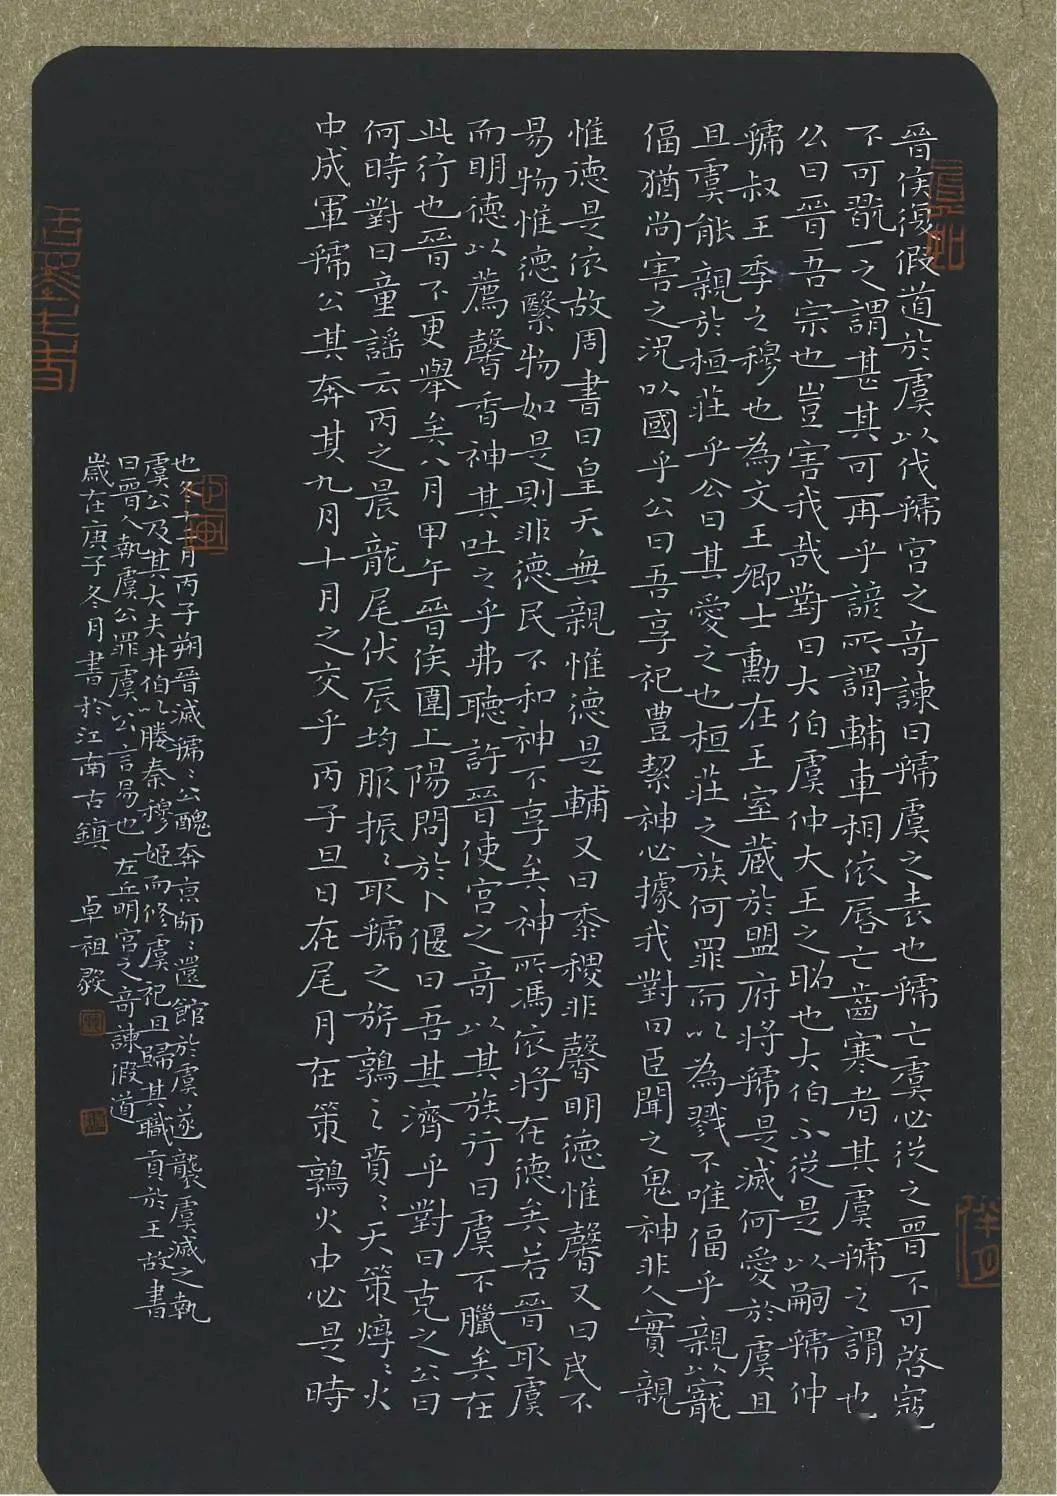 晉侯復假道於虞以伐虢宮之奇諫曰虢虞之表也虢亡虞必從之晉不可啓寇
不可翫一之謂甚其可再乎諺所謂輔車相依唇亡齒寒者其虞虢之謂也
公曰晉吾宗也豈害我哉對曰大伯虞仲大王之昭也大伯不從是以嗣虢仲
虢叔王季之穆也為文王卿士勳在王室藏於盟府將虢是滅何愛於虞且
且虞能親於桓莊乎公曰其愛之也桓莊之族何罪而以為戮不唯偪乎親以寵
偪猶尚害之況以國乎公曰吾享祀豊絜神必據我對曰臣聞之鬼神非人實親
惟德是依故周書曰皇天無親惟德是輔又曰黍稷非馨明德惟馨又曰民不
易物惟德繄物如是則非德民不和神不享矣神所馮依將在德矣若晉取虞
而明德以薦馨香神其吐之乎弗聽許晉使宮之奇以其族行曰虞不臘矣在
此行也晉不更舉矣八月甲午晉侯圍上陽問於卜偃曰吾其濟乎對曰克之公曰
何時對曰童謠云丙之晨龍尾伏辰均服振〻取虢之旂鶉之賁〻天策焞〻火
中成軍虢公其奔其九月十月之交乎丙子旦日在尾月在策鶉火中必是時
也冬十二月丙子朔晉滅虢〻公醜奔京師〻還館於虞遂襲虞滅之執
虞公及其大夫井伯以媵秦穆姬而修虞祀且歸其職貢於王故書
曰晉人執虞公罪虞公言易也 左丘明宮之奇諫假道
歲在庚子冬月書於江南古鎮 卓祖毅